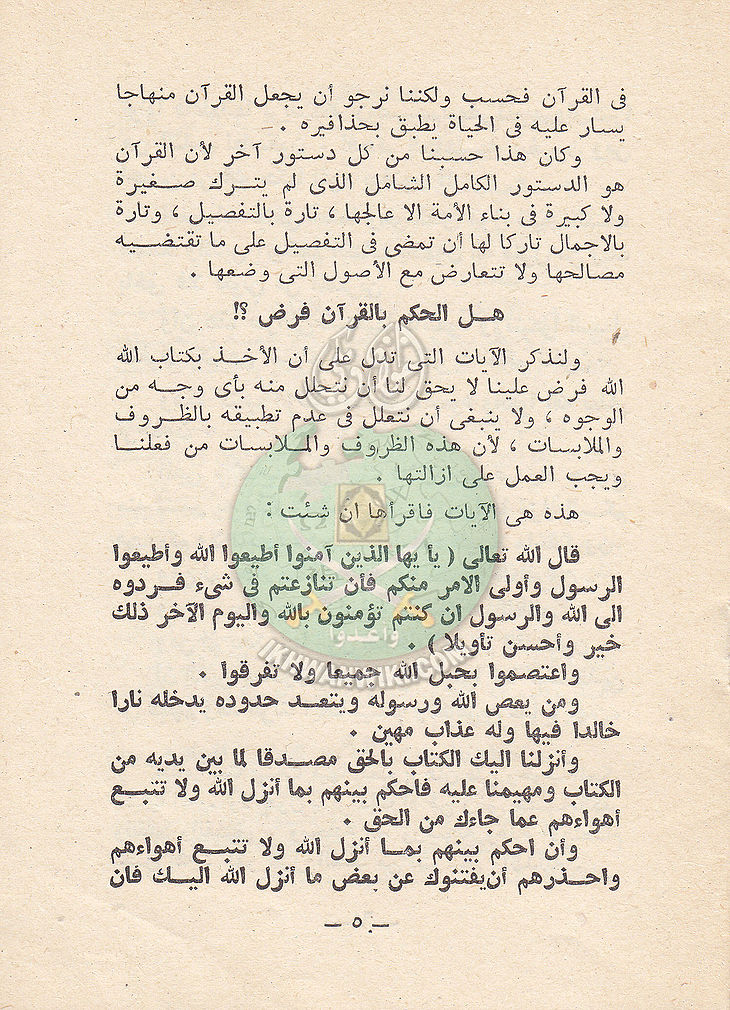 فى القرآن فحسب ولكننا نرجو أن يجعل القرآن منهاجا
يسار عليه فى الحياة يطبق بحذافيره .
وكان هذا حسبنا من كل دستور آخر لأن القرآن
هو الدستور الكامل الشامل الذى لم يترك صغيرة
ولا كبيرة فى بناء الأمة الا عالجها ، تارة بالتفصيل ، وتارة
بالاجمال تاركا لها أن تمضى فى التفصيل على ما تقتضيه
مصالحها ولا تتعارض مع الأصول التى وضعها .
هل الحكم بالقرآن فرض ؟!
ولنذكر الآيات التى تدل على أن الأخذ بكتاب الله
الله فرض علينا لا يحق لنا أن نتحلل منه بأى وجه من
الوجوه ، ولا ينبغى أن نتعلل فى عدم تطبيقه بالظروف
والملابسات ، لأن هذه الظروف والملابسات من فعلنا
ويجب العمل على ازالتها .
هذه هى الآيات فاقرأها ان شئت :
قال الله تعالى ( يأ يها الذين آمنوا أطيعوا الله وأطيعوا
الرسول وأولى الامر منكم فأن تنازعتم فى شىء فردوه
الى الله والرسول ان كنتم تؤمنون بالله واليوم الآخر ذلك
خير وأحسن تأويلا ) .
واعتصموا بحبل الله جميعا ولا تفرقوا .
ومن يعص الله ورسوله ويتعد حدوده يدخله نارا
خالدا فيها وله عذاب مهين .
وأنزلنا اليك الكتاب بالحق مصدقا لما بين يديه من
الكتاب ومهيمنا عليه فاحكم بينهم بما أنزل الله ولا تتبع
أهواءهم عما جاءك من الحق .
وأن احكم بينهم بما أنزل الله ولا تتبع أهواءهم
واحذرهم أن يفتنوك عن بعض ما أنزل الله اليك فان
— ٥ —
وأعدوا
IKHWANWIKI.COM